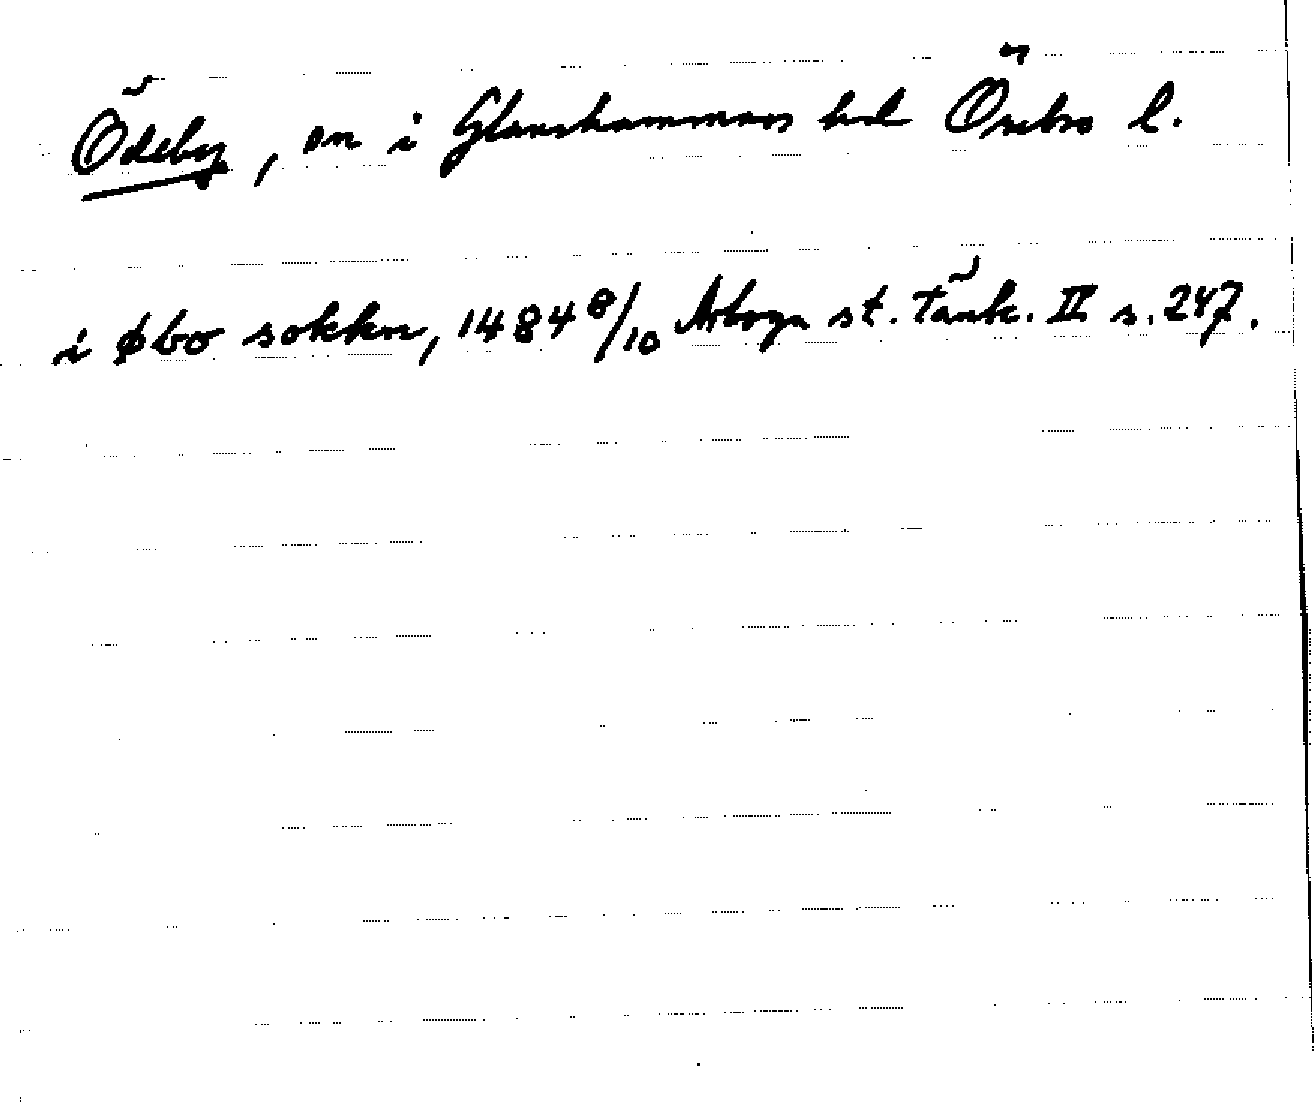 Ödeby, sn i Glanshammars hd Örebro l.
i øbo sokkn, 1484 8/10 Arboga st. tänk. II s. 247.